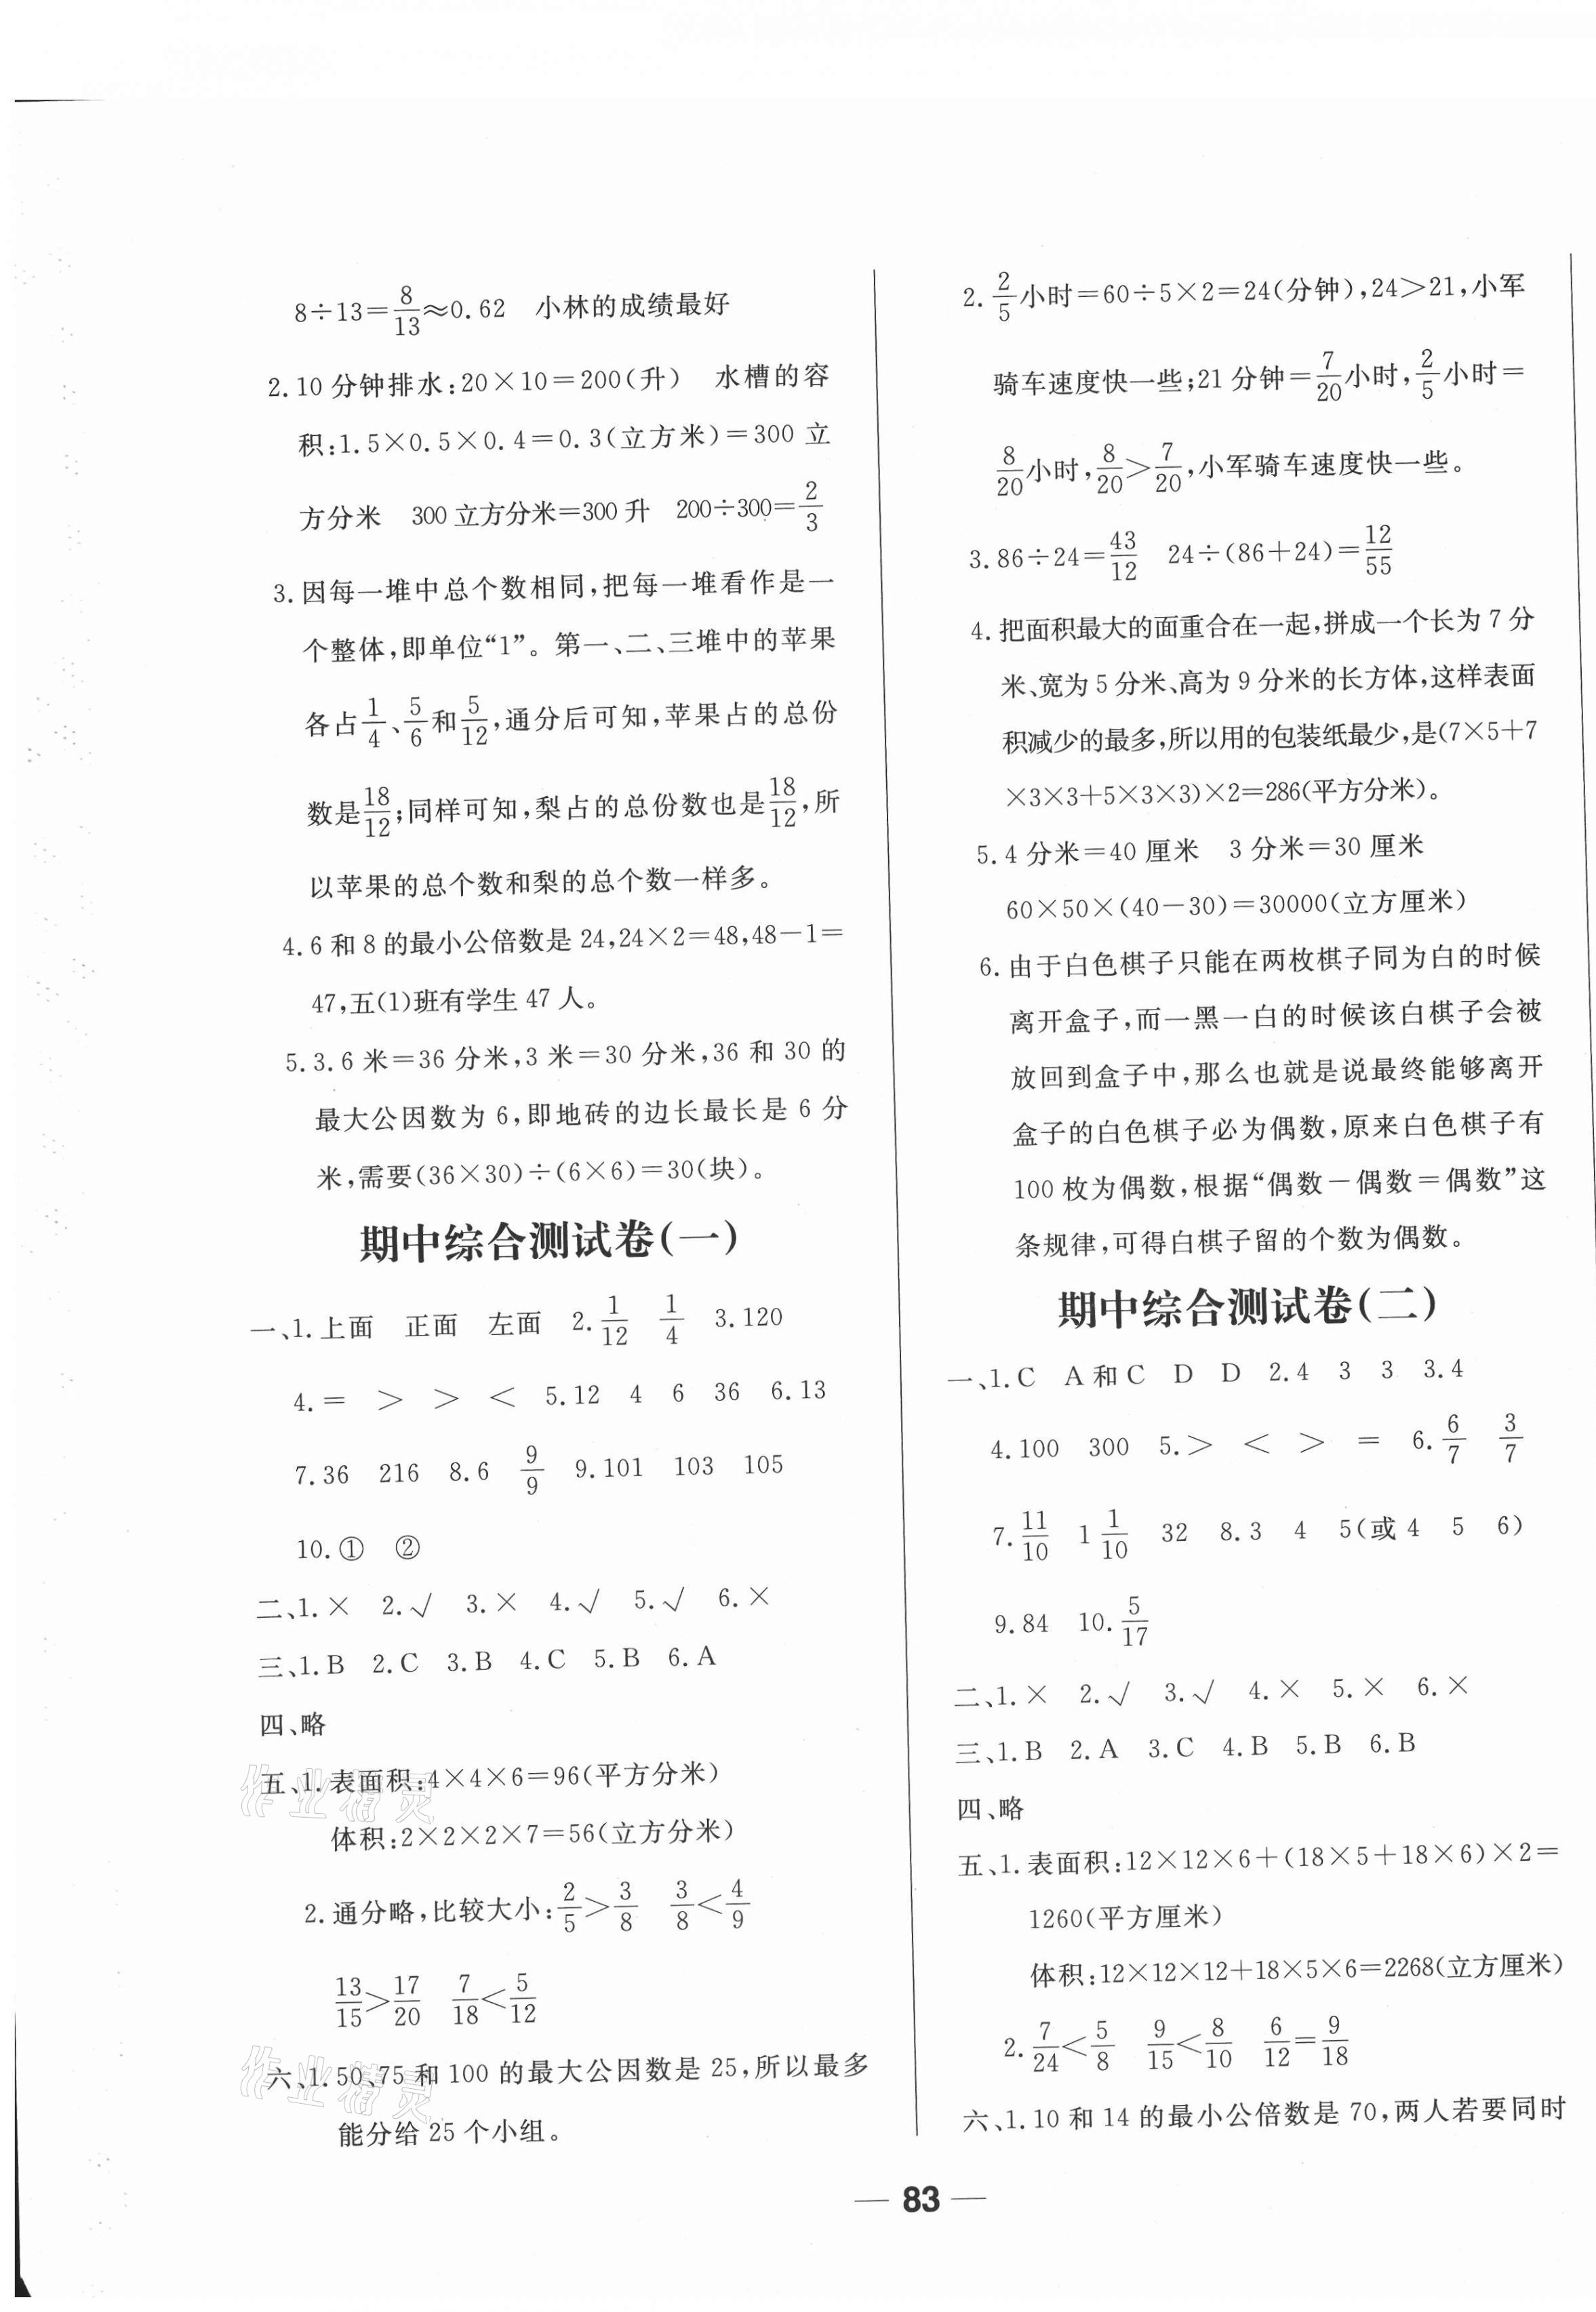 8÷13=8/13≈0.62　小林的成绩最好
2.10 分钟排水:20×10=200(升)　水槽的容
积:1.5×0.5×0.4=0.3(立方米)=300 立
方分米　300 立方分米=300 升　200÷300=2/3
3.因每一堆中总个数相同,把每一堆看作是一
个整体,即单位“1”。第一、二、三堆中的苹果
各占1/4、5/6和5/12,通分后可知,苹果占的总份
数是18/12;同样可知,梨占的总份数也是18/12,所
以苹果的总个数和梨的总个数一样多。
4.6 和 8 的最小公倍数是 24,24×2=48,48-1=
47,五(1)班有学生 47 人。
5.3.6 米=36 分米,3 米=30 分米,36 和 30 的
最大公因数为 6,即地砖的边长最长是 6 分
米,需要(36×30)÷(6×6)=30(块)。
期中综合测试卷(一)
一、1.上面　正面　左面　2.1/12　1/4　3.120
4.=　>　>　<　5.12　4　6　36　6.13
7.36　216　8.6　9/9　9.101　103　105
10.①　②
二、1.×　2.√　3.×　4.√　5.√　6.×
三、1.B　2.C　3.B　4.C　5.B　6.A
四、略
五、1.表面积:4×4×6=96(平方分米)
体积:2×2×2×7=56(立方分米)
2.通分略,比较大小:2/5>3/8　3/8<4/9
13/15>17/20　7/18<5/12
六、1.50、75 和 100 的最大公因数是 25,所以最多
能分给 25 个小组。
2.2/5小时=60÷5×2=24(分钟),24>21,小军
骑车速度快一些;21 分钟=7/20小时,2/5小时=
8/20小时,8/20>7/20,小军骑车速度快一些。
3.86÷24=43/12　24÷(86+24)=12/55
4.把面积最大的面重合在一起,拼成一个长为 7 分
米、宽为 5 分米、高为 9 分米的长方体,这样表面
积减少的最多,所以用的包装纸最少,是(7×5+7
×3×3+5×3×3)×2=286(平方分米)。
5.4 分米=40 厘米　3 分米=30 厘米
60×50×(40-30)=30000(立方厘米)
6.由于白色棋子只能在两枚棋子同为白的时候
离开盒子,而一黑一白的时候该白棋子会被
放回到盒子中,那么也就是说最终能够离开
盒子的白色棋子必为偶数,原来白色棋子有
100 枚为偶数,根据“偶数-偶数=偶数”这
条规律,可得白棋子留的个数为偶数。
期中综合测试卷(二)
一、1.C　A 和 C　D　D　2.4　3　3　3.4
4.100　300　5.>　<　>　=　6.6/7　3/7
7.11/10　1 1/10　32　8.3　4　5(或 4　5　6)
9.84　10.5/17
二、1.×　2.√　3.√　4.×　5.×　6.×
三、1.B　2.A　3.C　4.B　5.B　6.B
四、略
五、1.表面积:12×12×6+(18×5+18×6)×2=
1260(平方厘米)
体积:12×12×12+18×5×6=2268(立方厘米)
2.7/24<5/8　9/15<8/10　6/12=9/18
六、1.10 和 14 的最小公倍数是 70,两人若要同时
— 83 —
作业精灵
作业精灵